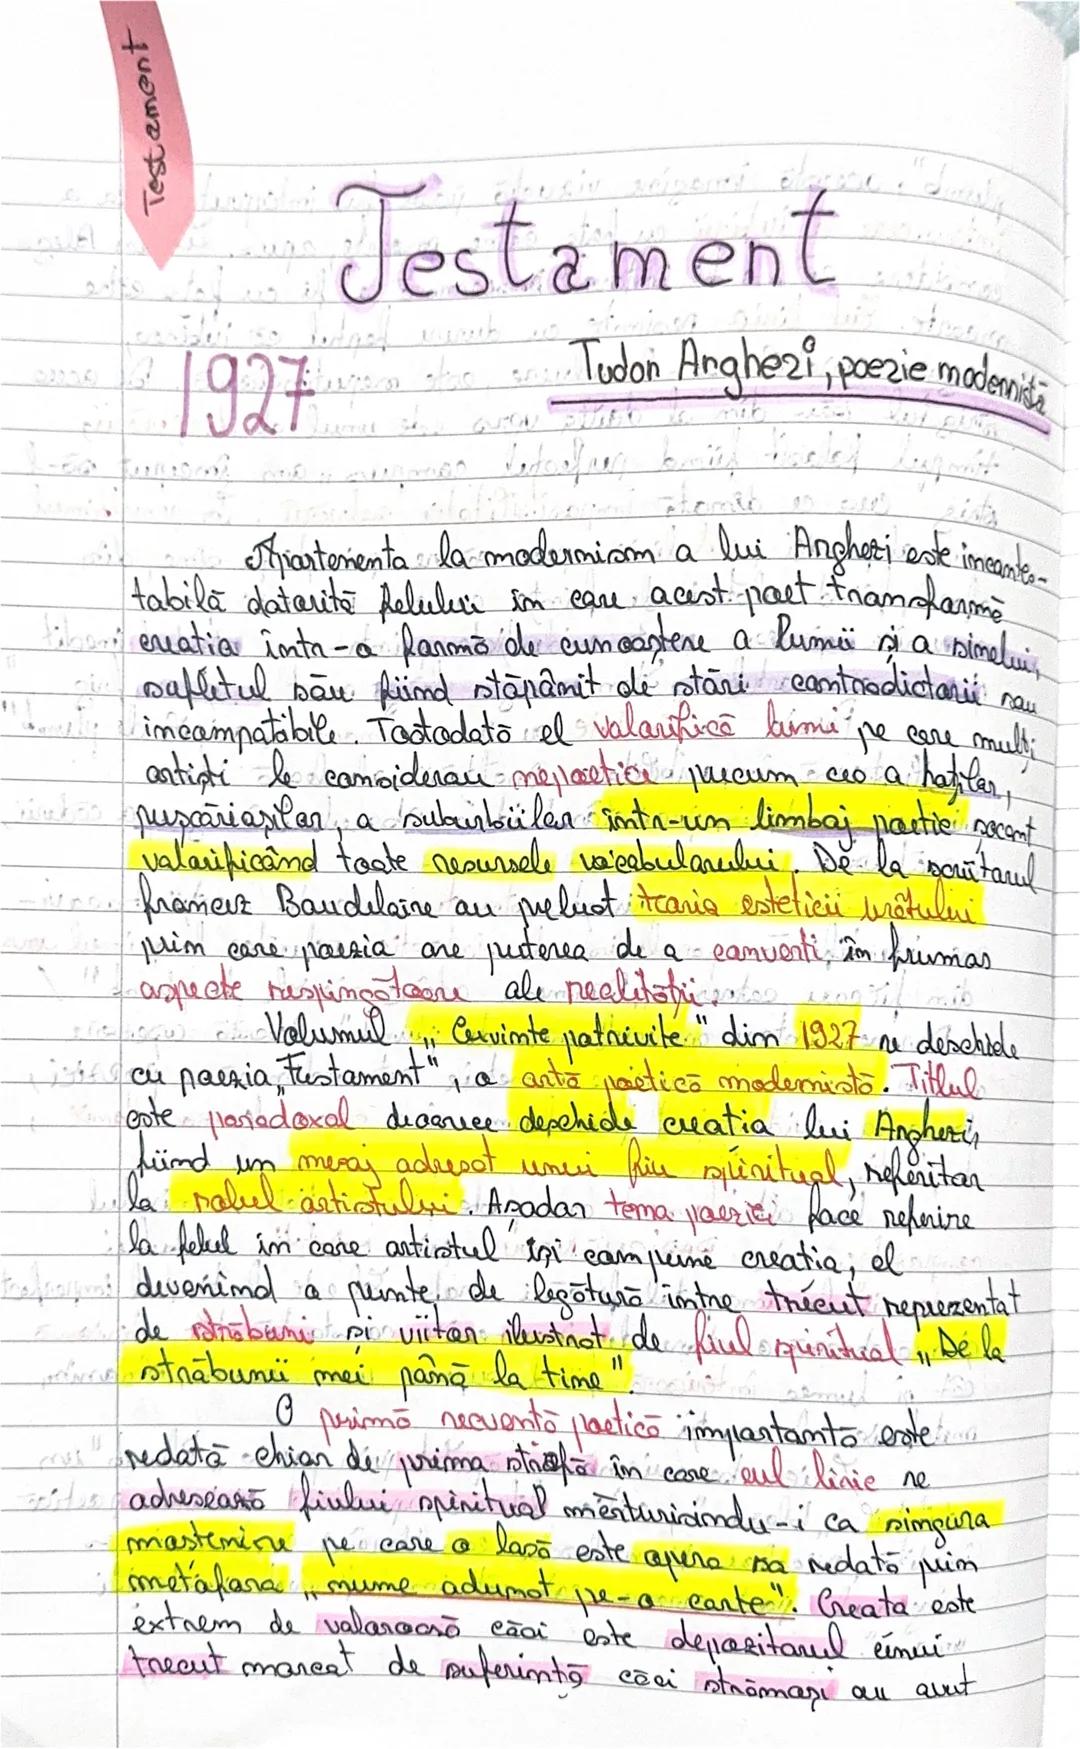 Testament
Testament
1927
Tudor Arghezi, poezie modernistă
Apartenenta la modernism a lui Arghezi este incontes-
tabilă datorită felului in care acest poet transformă
creatia într-o formă de cunoaștere a lumii și a sinelui,
sufletul său fiind stăpânit de stări contradictorii sau
incompatibile. Totodată el valorifică lumi pe care mulți
artiști le considerau nepoetice precum cea a hoților,
pușcăriașilor, a suburbiilor într-un limbaj poetic șocant
valorificând toate resursele vocabularului. De la scriitorul
francez Baudelaire au preluat teoria esteticii urâtului
prin care poezia are puterea de a converti în frumos
aspecte respingătoare ale realității.
Volumul „Cuvinte potrivite" din 1927 se deschide
cu poezia „Testament", o artă poetică modernistă. Titlul
este paradoxal deoarece deschide creatia lui Arghezi,
fiind un mesaj adresat unui fiu spiritual, referitor
la rolul artistului. Așadar tema poeziei face referire
la felul in care artistul își compune creatia, el
devenind o punte de legătură între trecut reprezentat
de străbuni și viitor ilustrat de fiul spiritual „De la
străbunii mei până la tine".
O primă secventă poetică importantă este
redată chiar de prima strofă in care eul liric se
adresează fiului spiritual mărturisindu-i ca singura
mostenire pe care o lasă este opera sa redată prin
metafora „nume adunat pe-o carte". Creata este
extrem de valoroasă căci este depozitarul unui
trecut marcat de suferintă căci strămoși au avut